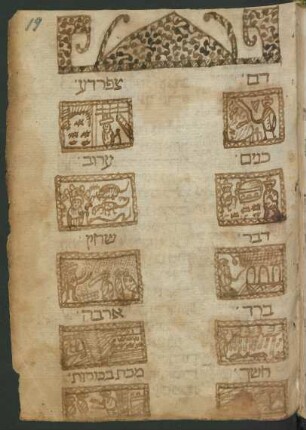 19
דם·
צפרדע·
כנים·
ערוב·
דבר·
שחין·
ברד·
ארבה·
חשך·
מכת בכורות·